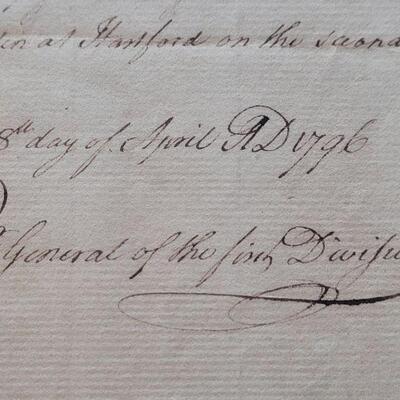 en at Hartford on the second
8th day of April AD 1796
General of the first Divisi